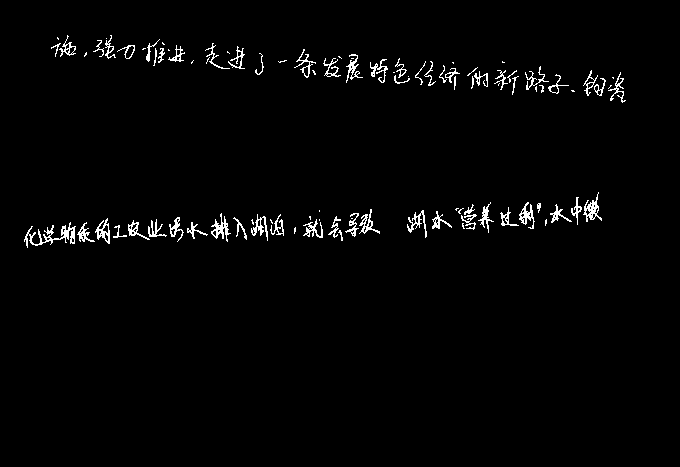 施,强力推进,走进了一条发展特色经济的新路子。钧瓷
化学物质的工农业污水排入湖泊,就会导致 湖水“营养过剩”,水中微